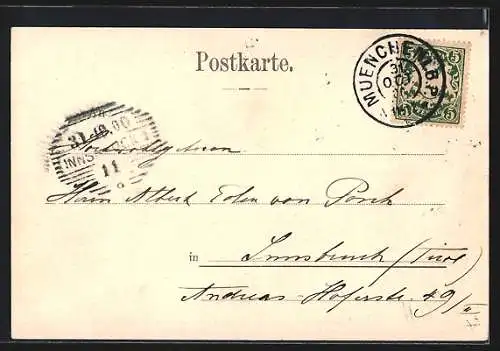 Postkarte.
MUENCHEN B.P.
30
OCT
5 5
31.10.00
INNS
11
Hochwohlgeboren
Herrn Albert Edlen von Posch
in Innsbruck / Tirol
Andreas-Hoferstr. 49/II